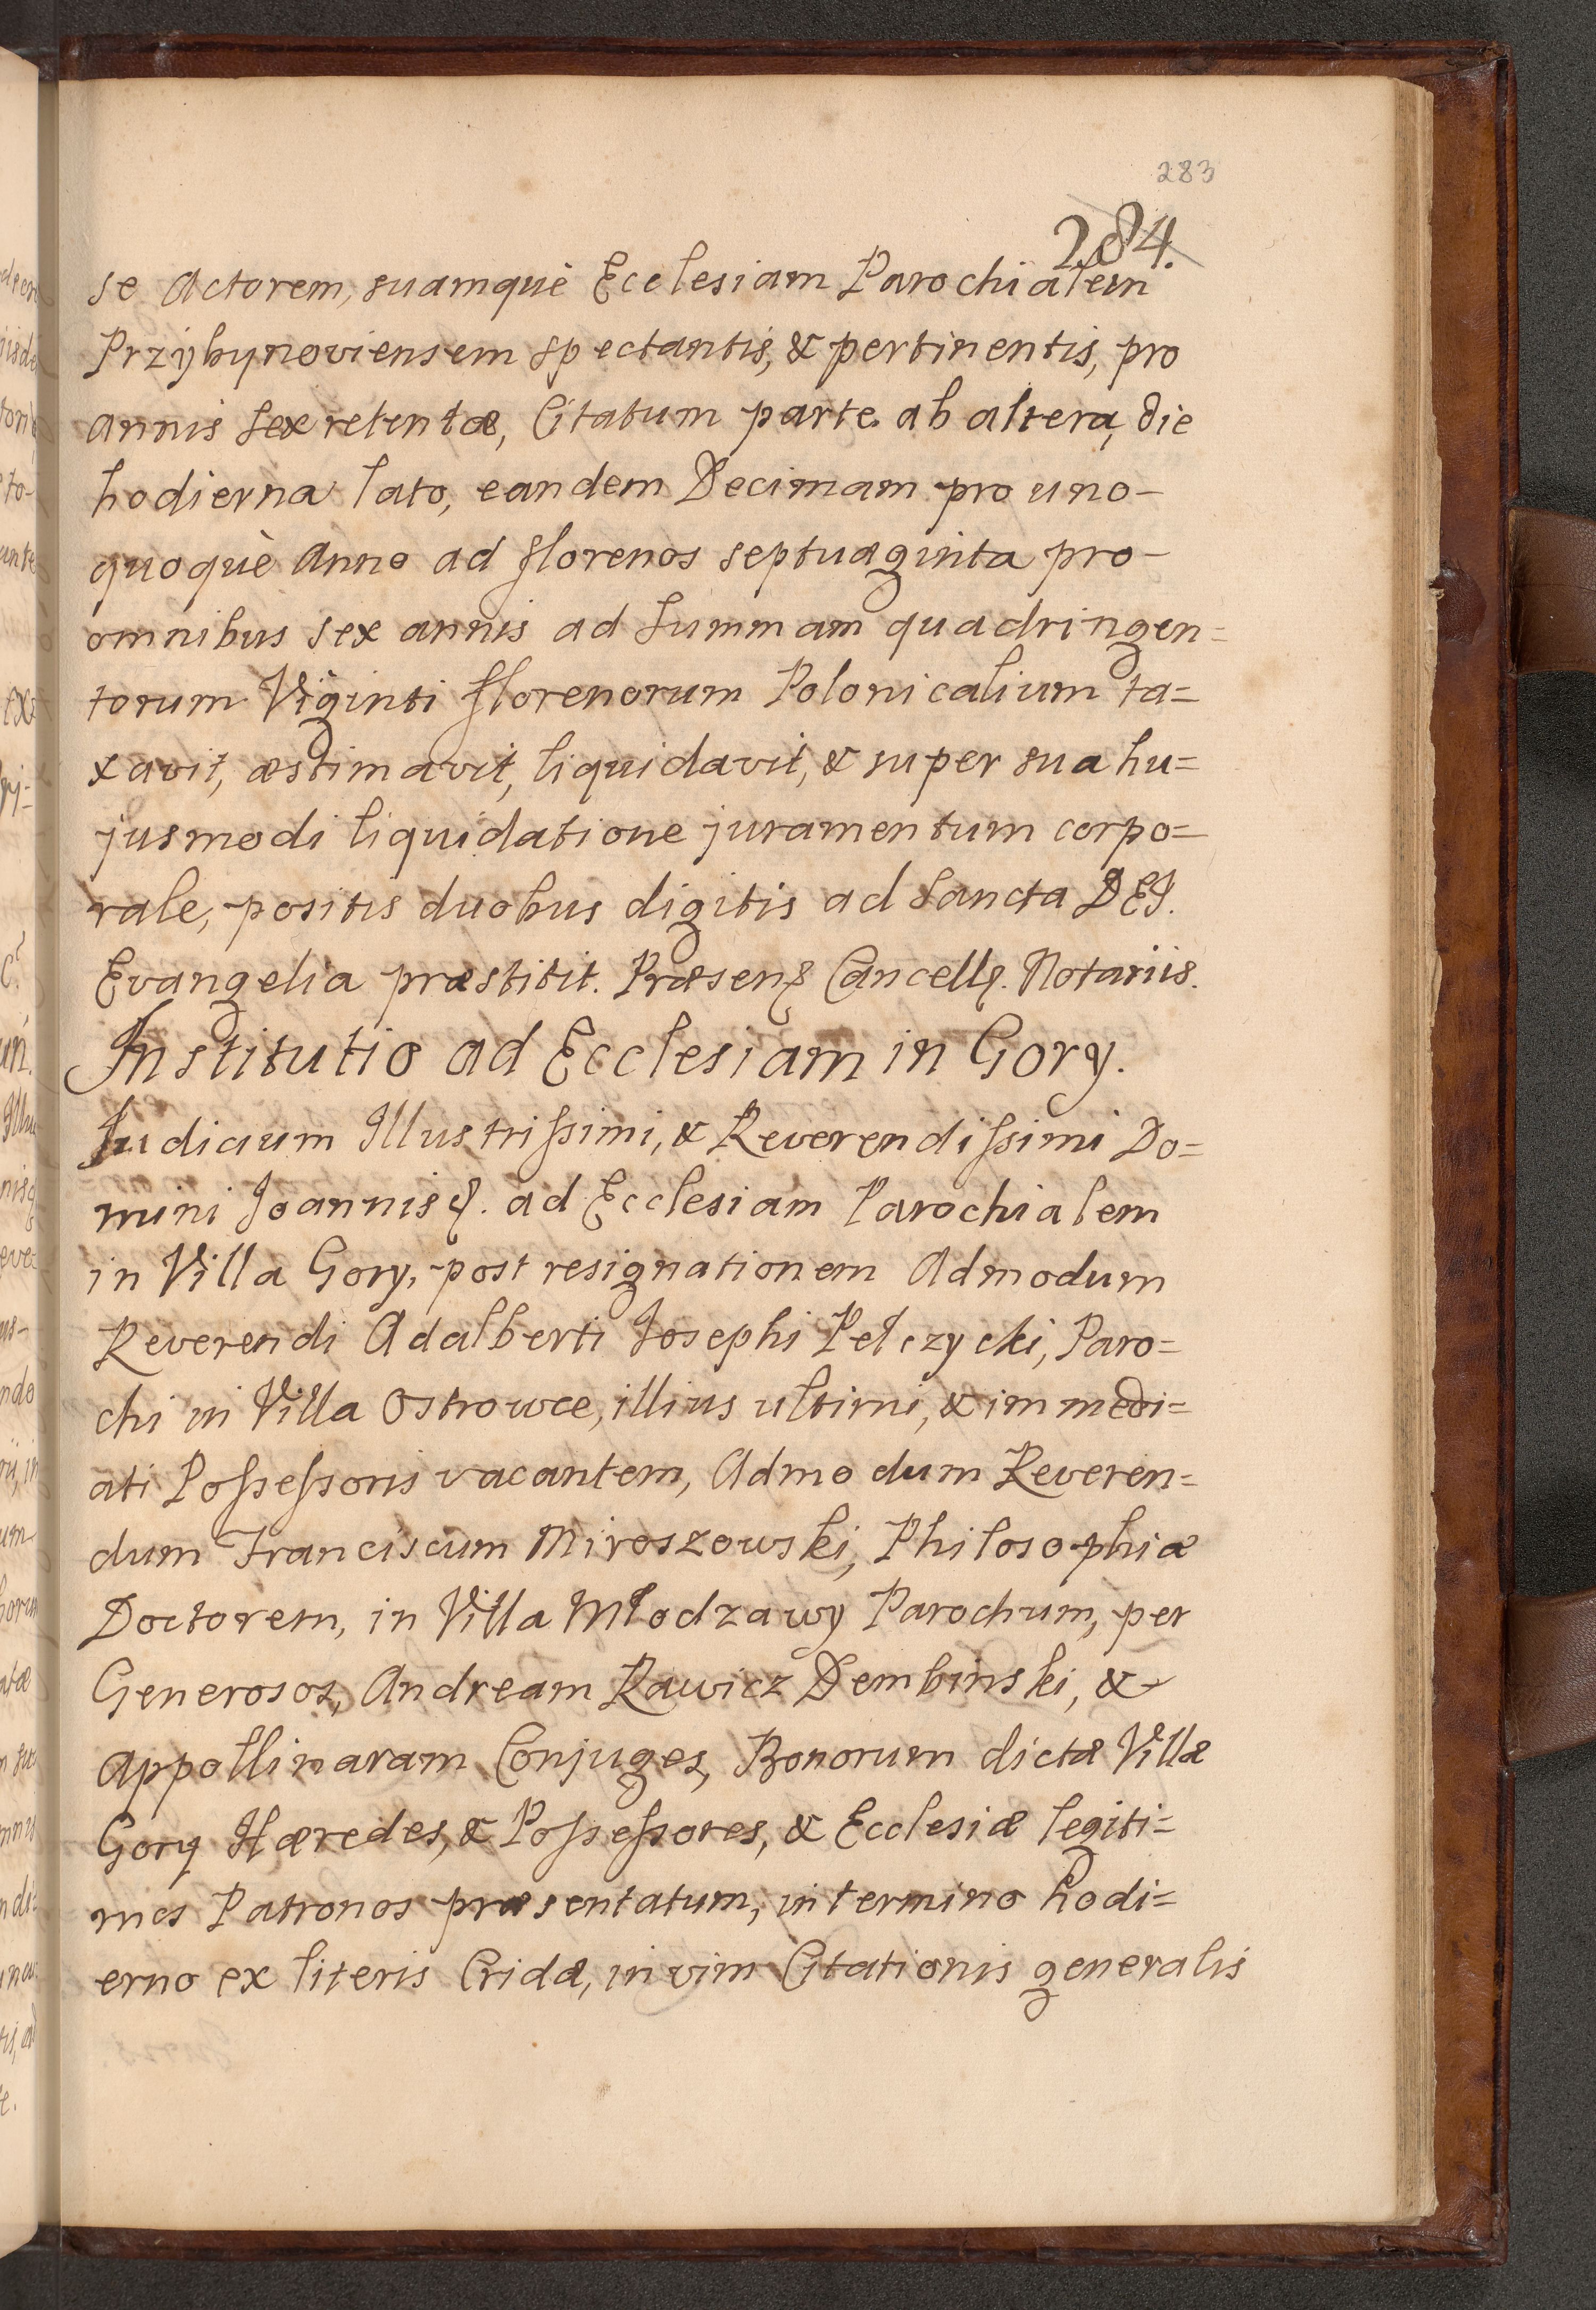 283
284.
se Actorem, suamquè Ecclesiam Parochialem
Przybynoviensem spectantis, & pertinentis, pro
annis sex retentæ, Citatum parte ab altera, die
hodierna lato, eandem Decimam pro uno-
quoquè Anno ad florenos septuaginta pro-
omnibus sex annis ad Summam quadringen=
torum Viginti florenorum Polonicalium ta=
xavit, æstimavit, liquidavit, & super sua hu=
jusmodi liquidatione juramentum corpo=
rale, positis duobus digitis ad Sancta DEI.
Evangelia præstitit. Præsen& Cancell&. Notariis.
Institutio ad Ecclesiam in Gory.
Judicium Illustrissimi, & Reverendissimi Do=
mini Joannis &. ad Ecclesiam Parochialem
in Villa Gory, post resignationem Admodum
Reverendi Adalberti Josephi Pełczycki, Paro=
chi in Villa Ostrowce, illius ultimi, & immedi=
ati Possessoris vacantem, Admodum Reveren=
dum Franciscum Miroszowski, Philosophiæ
Doctorem, in Villa Młodzawy Parochum, per
Generosos, Andream Rawicz Dembinski, &
Appollinaram Conjuges, Bonorum dictæ Villæ
Gory Hæredes, & Possessores, & Ecclesiæ legiti=
mos Patronos præsentatum, in termino hodi=
erno ex literis Cridæ, in vim Citationis generalis